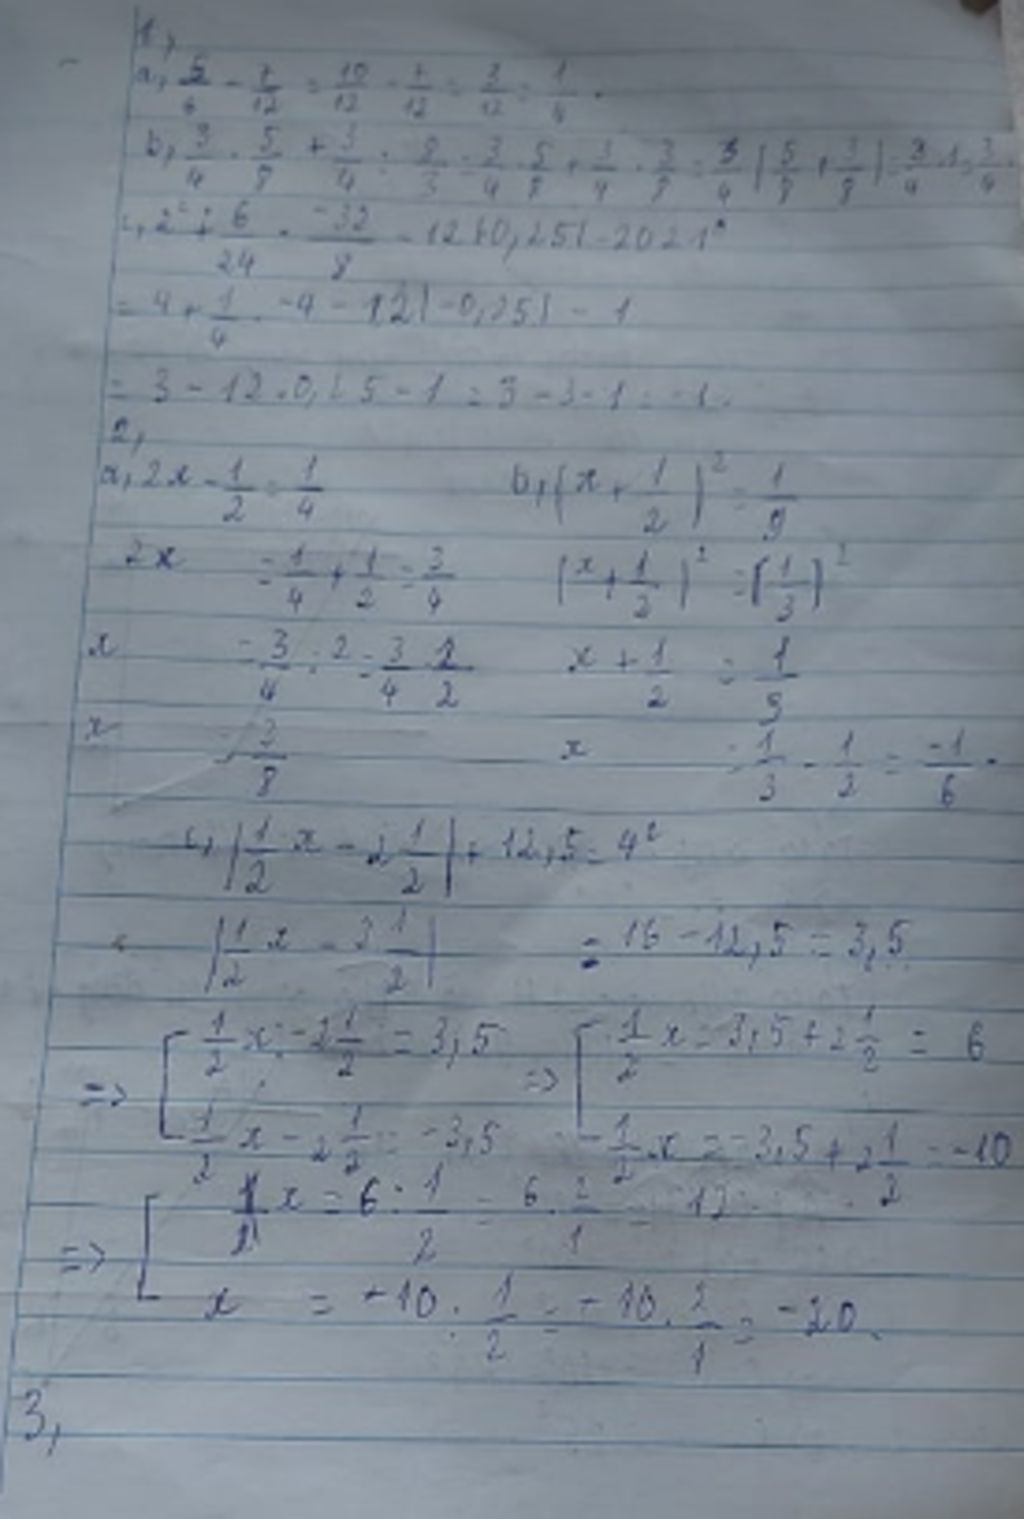 1,
a, 5/6 - 7/12 = 10/12 - 7/12 = 3/12 = 1/4 .
b, 3/4 . 5/8 + 3/4 : 8/3 = 3/4 . 5/8 + 3/4 . 3/8 = 3/4 (5/8 + 3/8) = 3/4 . 1 = 3/4 .
c, 2² + 6/24 . -32/8 - 12 |-0,25| - 2021⁰
= 4 + 1/4 . -4 - 12 |-0,25| - 1
= 3 - 12 . 0,25 - 1 = 3 - 3 - 1 = -1 .
2,
a, 2x - 1/2 = 1/4 b, (x + 1/2)² = 1/9
2x = 1/4 + 1/2 = 3/4 (x + 1/2)² = (1/3)²
x = 3/4 : 2 = 3/4 . 1/2 x + 1/2 = 1/3
x = 3/8 x = 1/3 - 1/2 = -1/6 .
c, |1/2 x - 2 1/2| + 12,5 = 4²
|1/2 x - 2 1/2| = 16 - 12,5 = 3,5
=> [ 1/2 x - 2 1/2 = 3,5 => [ 1/2 x = 3,5 + 2 1/2 = 6
1/2 x - 2 1/2 = -3,5 1/2 x = -3,5 + 2 1/2 = -10
=> [ x = 6 : 1/2 = 6 . 2/1 = 12
x = -10 : 1/2 = -10 . 2/1 = -20 .
3,